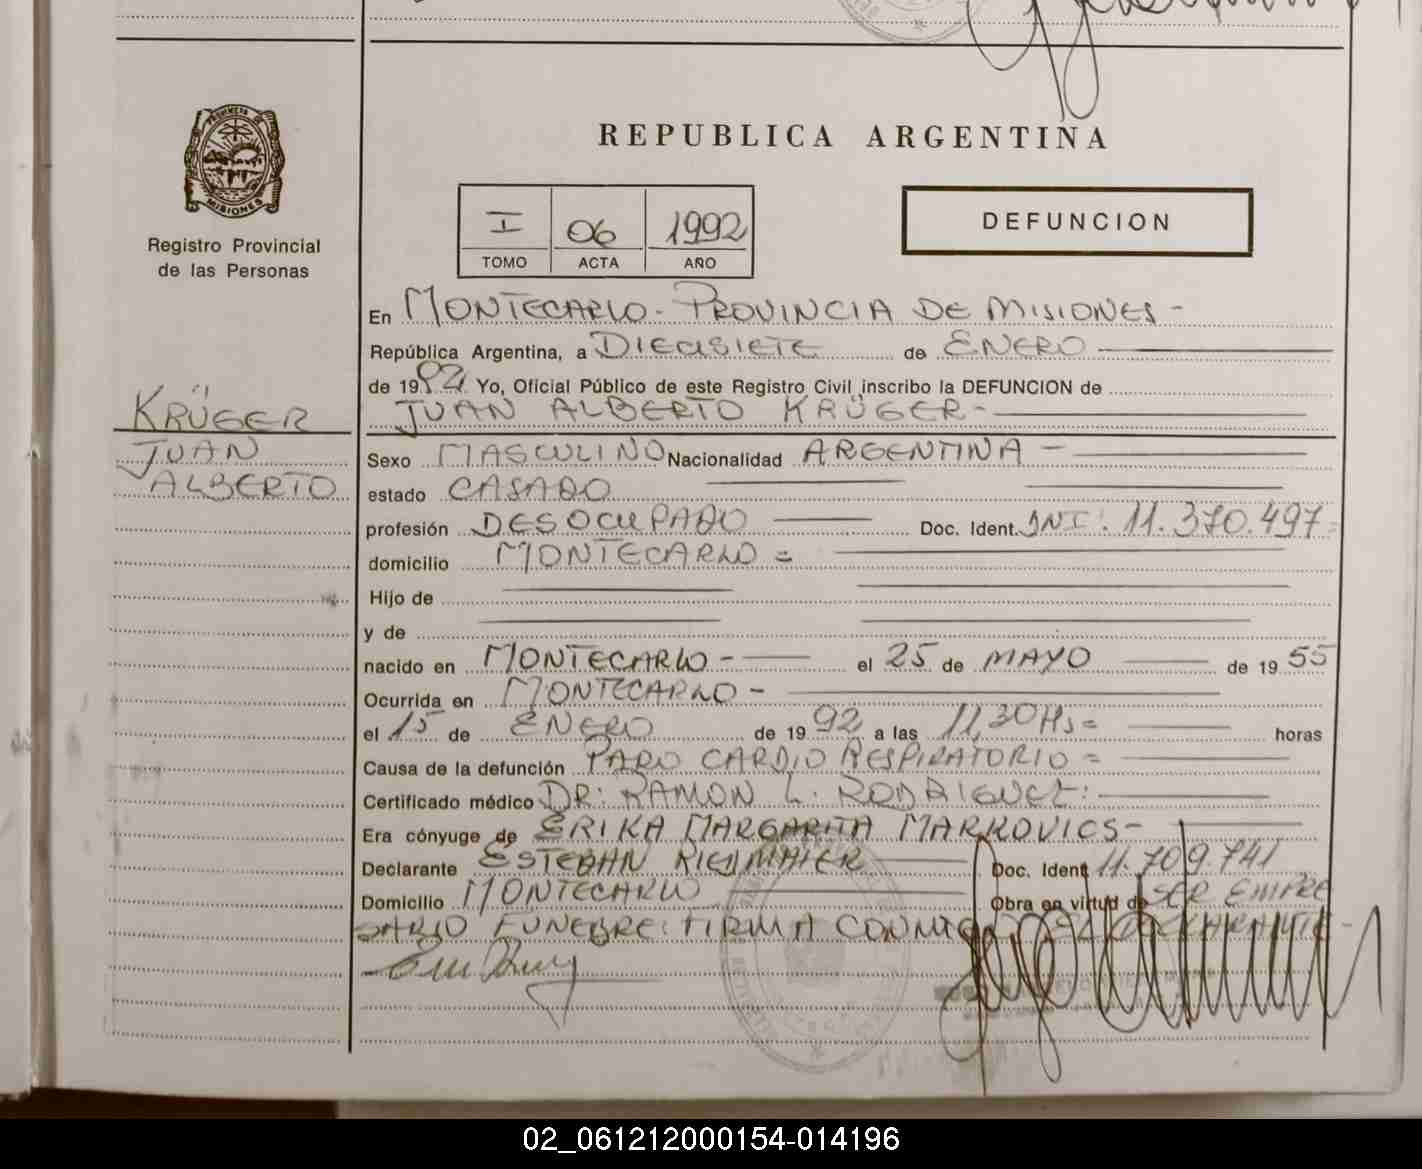 REPUBLICA ARGENTINA
PROVINCIA DE
MISIONES
Registro Provincial
de las Personas
I 06 1992
TOMO ACTA AÑO
DEFUNCION
En MONTECARLO - PROVINCIA DE MISIONES -
República Argentina, a DIECISIETE de ENERO
de 1992 Yo, Oficial Público de este Registro Civil inscribo la DEFUNCION de
JUAN ALBERTO KRÜGER -
KRÜGER
JUAN
ALBERTO
Sexo MASCULINO Nacionalidad ARGENTINA -
estado CASADO
profesión DESOCUPADO Doc. Ident. DNI. 11.370.497=
domicilio MONTECARLO =
Hijo de
y de
nacido en MONTECARLO - el 25 de MAYO de 1955
Ocurrida en MONTECARLO -
el 15 de ENERO de 1992 a las 11,30 Hs= horas
Causa de la defunción PARO CARDIO RESPIRATORIO =
Certificado médico DR: RAMON L. RODRIGUEZ:
Era cónyuge de ERIKA MARGARITA MARKOVICS -
Declarante ESTEBAN Doc. Ident 11.709.741
Domicilio MONTECARLO Obra en virtud de SER EMPRE
SARIO FUNEBRE: FIRMA CONMIGO EL DECLARANTE -
02_061212000154-014196